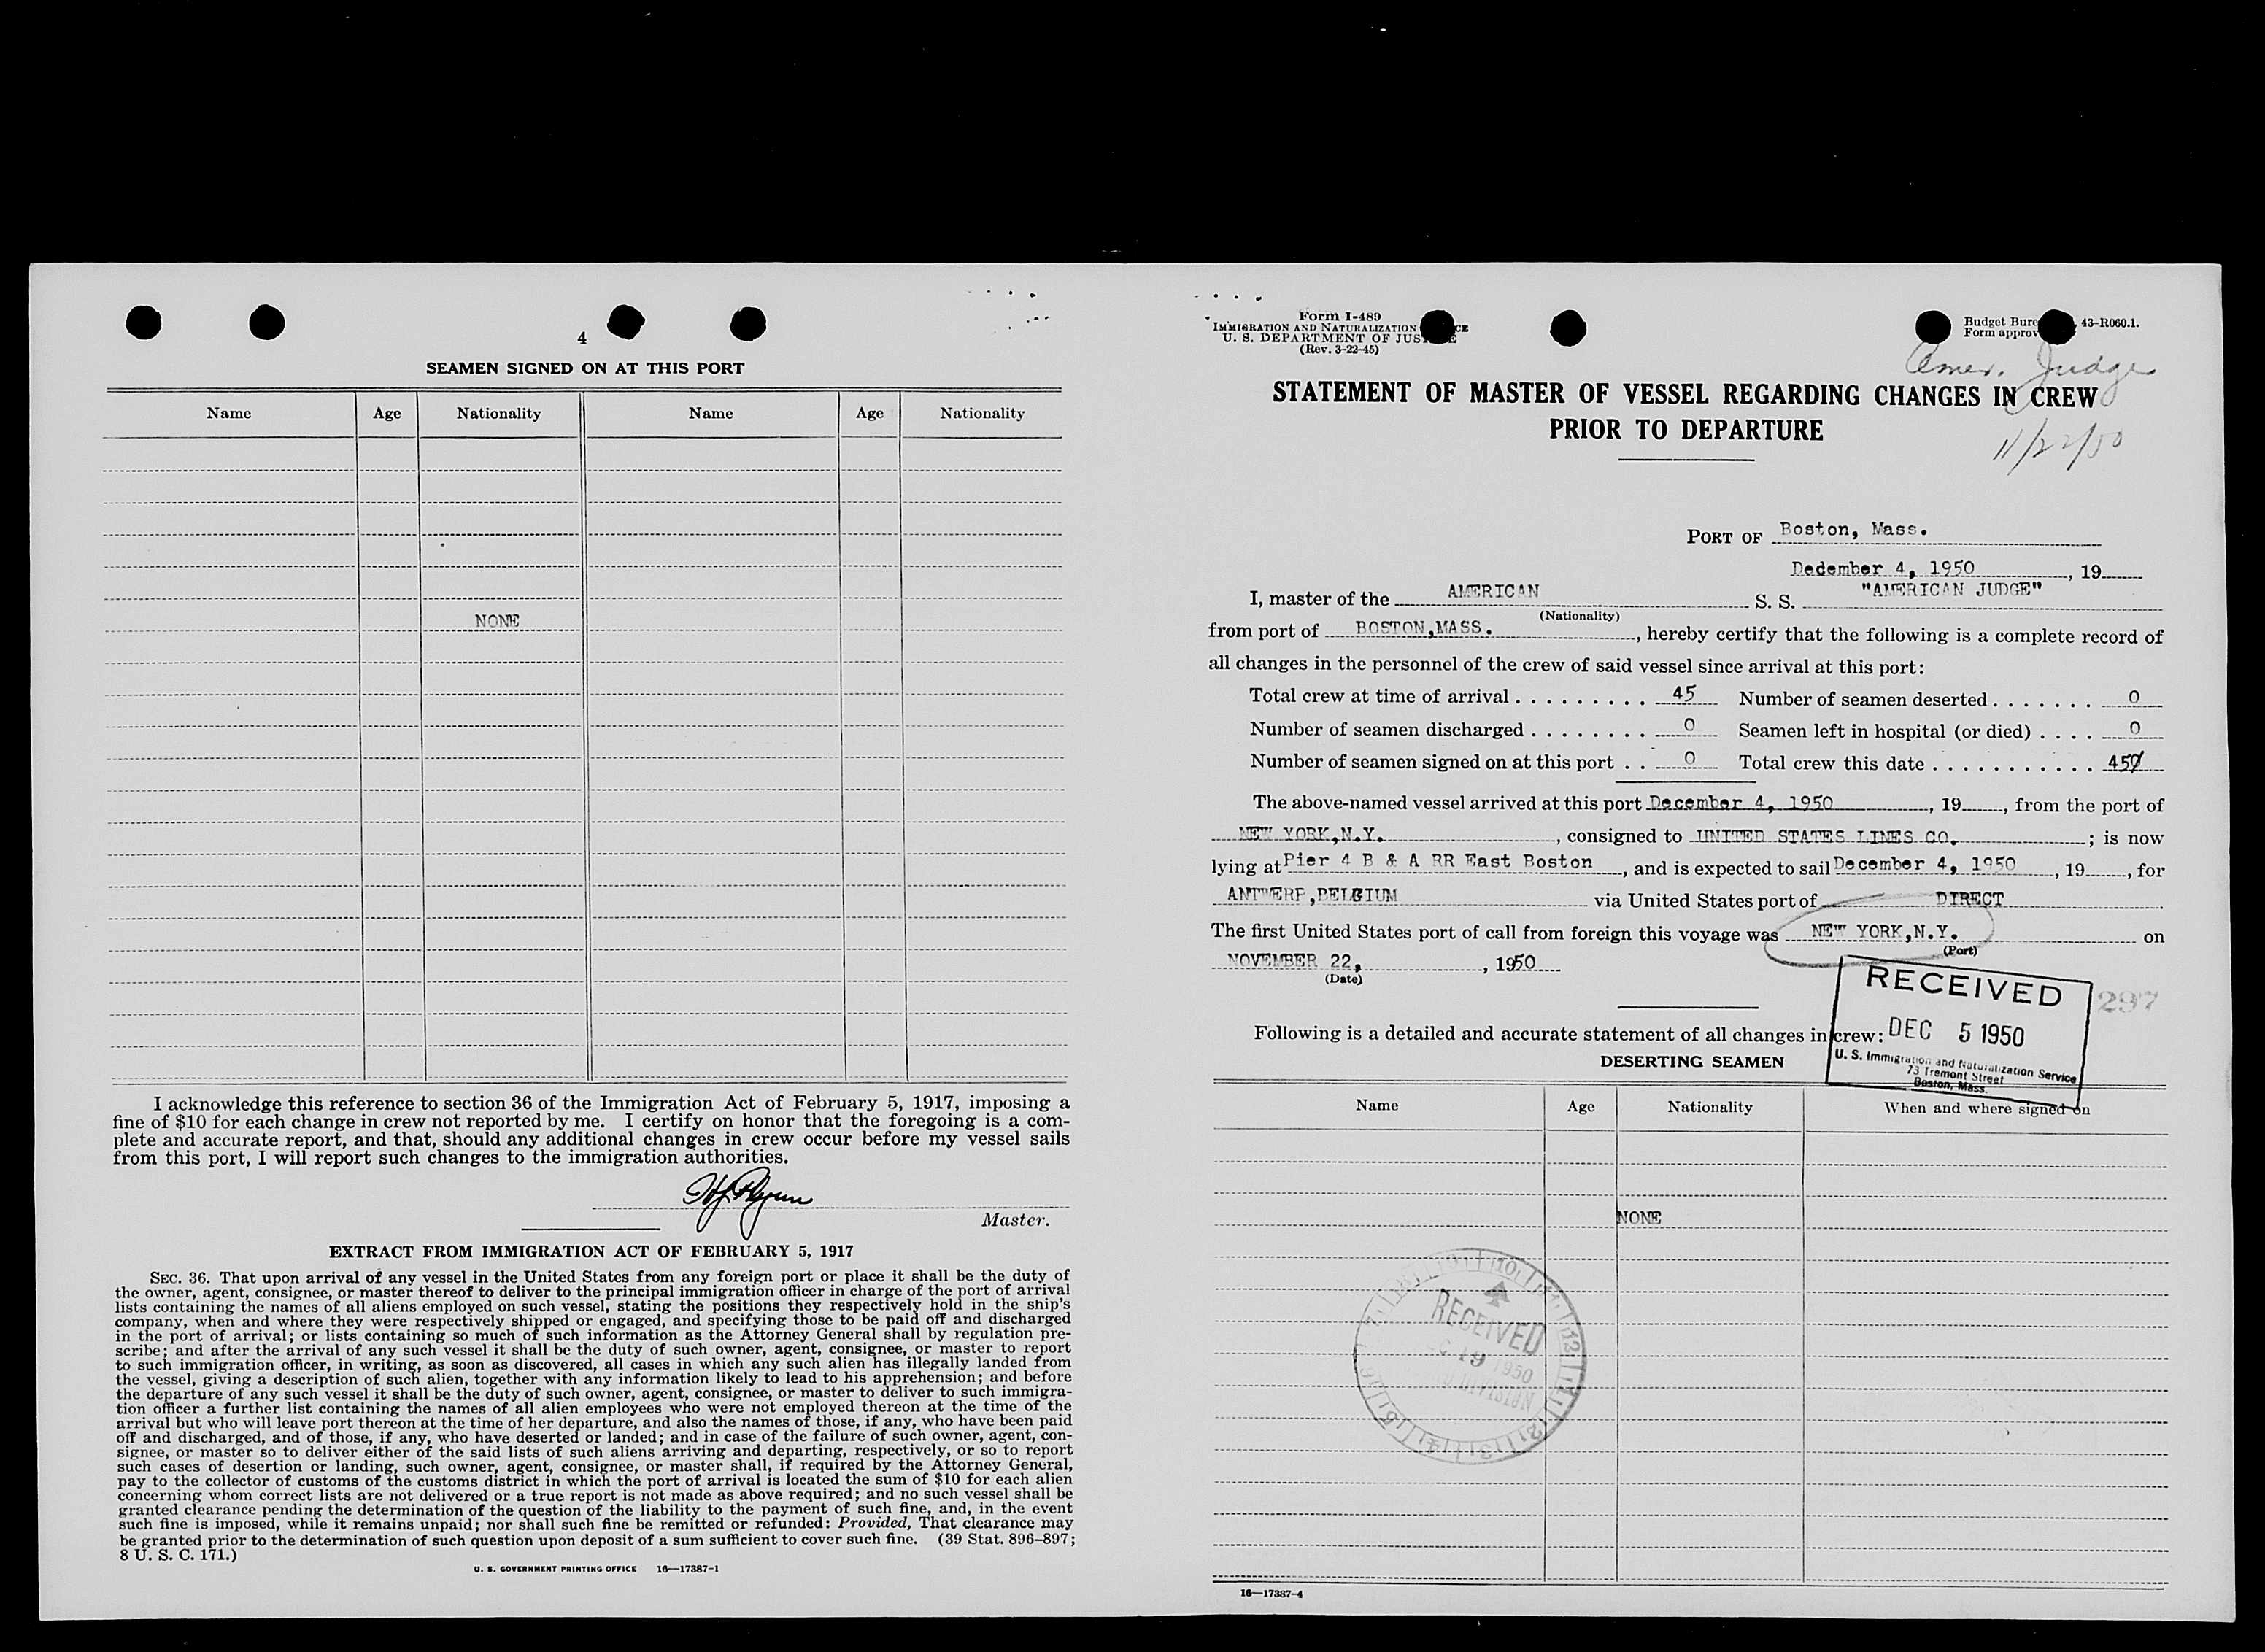 4
SEAMEN SIGNED ON AT THIS PORT
Name Age Nationality Name Age Nationality
NONE
I acknowledge this reference to section 36 of the Immigration Act of February 5, 1917, imposing a
fine of $10 for each change in crew not reported by me. I certify on honor that the foregoing is a com-
plete and accurate report, and that, should any additional changes in crew occur before my vessel sails
from this port, I will report such changes to the immigration authorities.
Master.
EXTRACT FROM IMMIGRATION ACT OF FEBRUARY 5, 1917
SEC. 36. That upon arrival of any vessel in the United States from any foreign port or place it shall be the duty of
the owner, agent, consignee, or master thereof to deliver to the principal immigration officer in charge of the port of arrival
lists containing the names of all aliens employed on such vessel, stating the positions they respectively hold in the ship's
company, when and where they were respectively shipped or engaged, and specifying those to be paid off and discharged
in the port of arrival; or lists containing so much of such information as the Attorney General shall by regulation pre-
scribe; and after the arrival of any such vessel it shall be the duty of such owner, agent, consignee, or master to report
to such immigration officer, in writing, as soon as discovered, all cases in which any such alien has illegally landed from
the vessel, giving a description of such alien, together with any information likely to lead to his apprehension; and before
the departure of any such vessel it shall be the duty of such owner, agent, consignee, or master to deliver to such immigra-
tion officer a further list containing the names of all alien employees who were not employed thereon at the time of the
arrival but who will leave port thereon at the time of her departure, and also the names of those, if any, who have been paid
off and discharged, and of those, if any, who have deserted or landed; and in case of the failure of such owner, agent, con-
signee, or master so to deliver either of the said lists of such aliens arriving and departing, respectively, or so to report
such cases of desertion or landing, such owner, agent, consignee, or master shall, if required by the Attorney General,
pay to the collector of customs of the customs district in which the port of arrival is located the sum of $10 for each alien
concerning whom correct lists are not delivered or a true report is not made as above required; and no such vessel shall be
granted clearance pending the determination of the question of the liability to the payment of such fine, and, in the event
such fine is imposed, while it remains unpaid; nor shall such fine be remitted or refunded: Provided, That clearance may
be granted prior to the determination of such question upon deposit of a sum sufficient to cover such fine. (39 Stat. 896-897;
8 U. S. C. 171.)
U. S. GOVERNMENT PRINTING OFFICE 16—17387-1
Form I-489
IMMIGRATION AND NATURALIZATION
U. S. DEPARTMENT OF
(Rev. 3-22-45)
Budget 43-R060.1.
Form
Amer. Judge
STATEMENT OF MASTER OF VESSEL REGARDING CHANGES IN CREW
PRIOR TO DEPARTURE
11/22/50
PORT OF Boston, Mass.
Dedember 4, 1950, 19
I, master of the AMERICAN S. S. "AMERICAN JUDGE"
(Nationality)
from port of BOSTON,MASS., hereby certify that the following is a complete record of
all changes in the personnel of the crew of said vessel since arrival at this port:
Total crew at time of arrival 45 Number of seamen deserted 0
Number of seamen discharged 0 Seamen left in hospital (or died) 0
Number of seamen signed on at this port 0 Total crew this date 45
The above-named vessel arrived at this port December 4, 1950, 19, from the port of
NEW YORK,N.Y., consigned to UNITED STATES LINES CO.; is now
lying at Pier 4 B & A RR East Boston, and is expected to sail December 4, 1950, 19, for
ANTWERP,BELGIUM via United States port of DIRECT
The first United States port of call from foreign this voyage was NEW YORK,N.Y. on
(Port)
NOVEMBER 22, , 1950
(Date)
RECEIVED
DEC 5 1950
U. S. Immigration and Naturalization Service
73 Tremont Street
Boston, Mass.
297
Following is a detailed and accurate statement of all changes in crew:
DESERTING SEAMEN
Name Age Nationality When and where signed on
NONE
RECEIVED
19 1950
DIVISION
16—17387-4